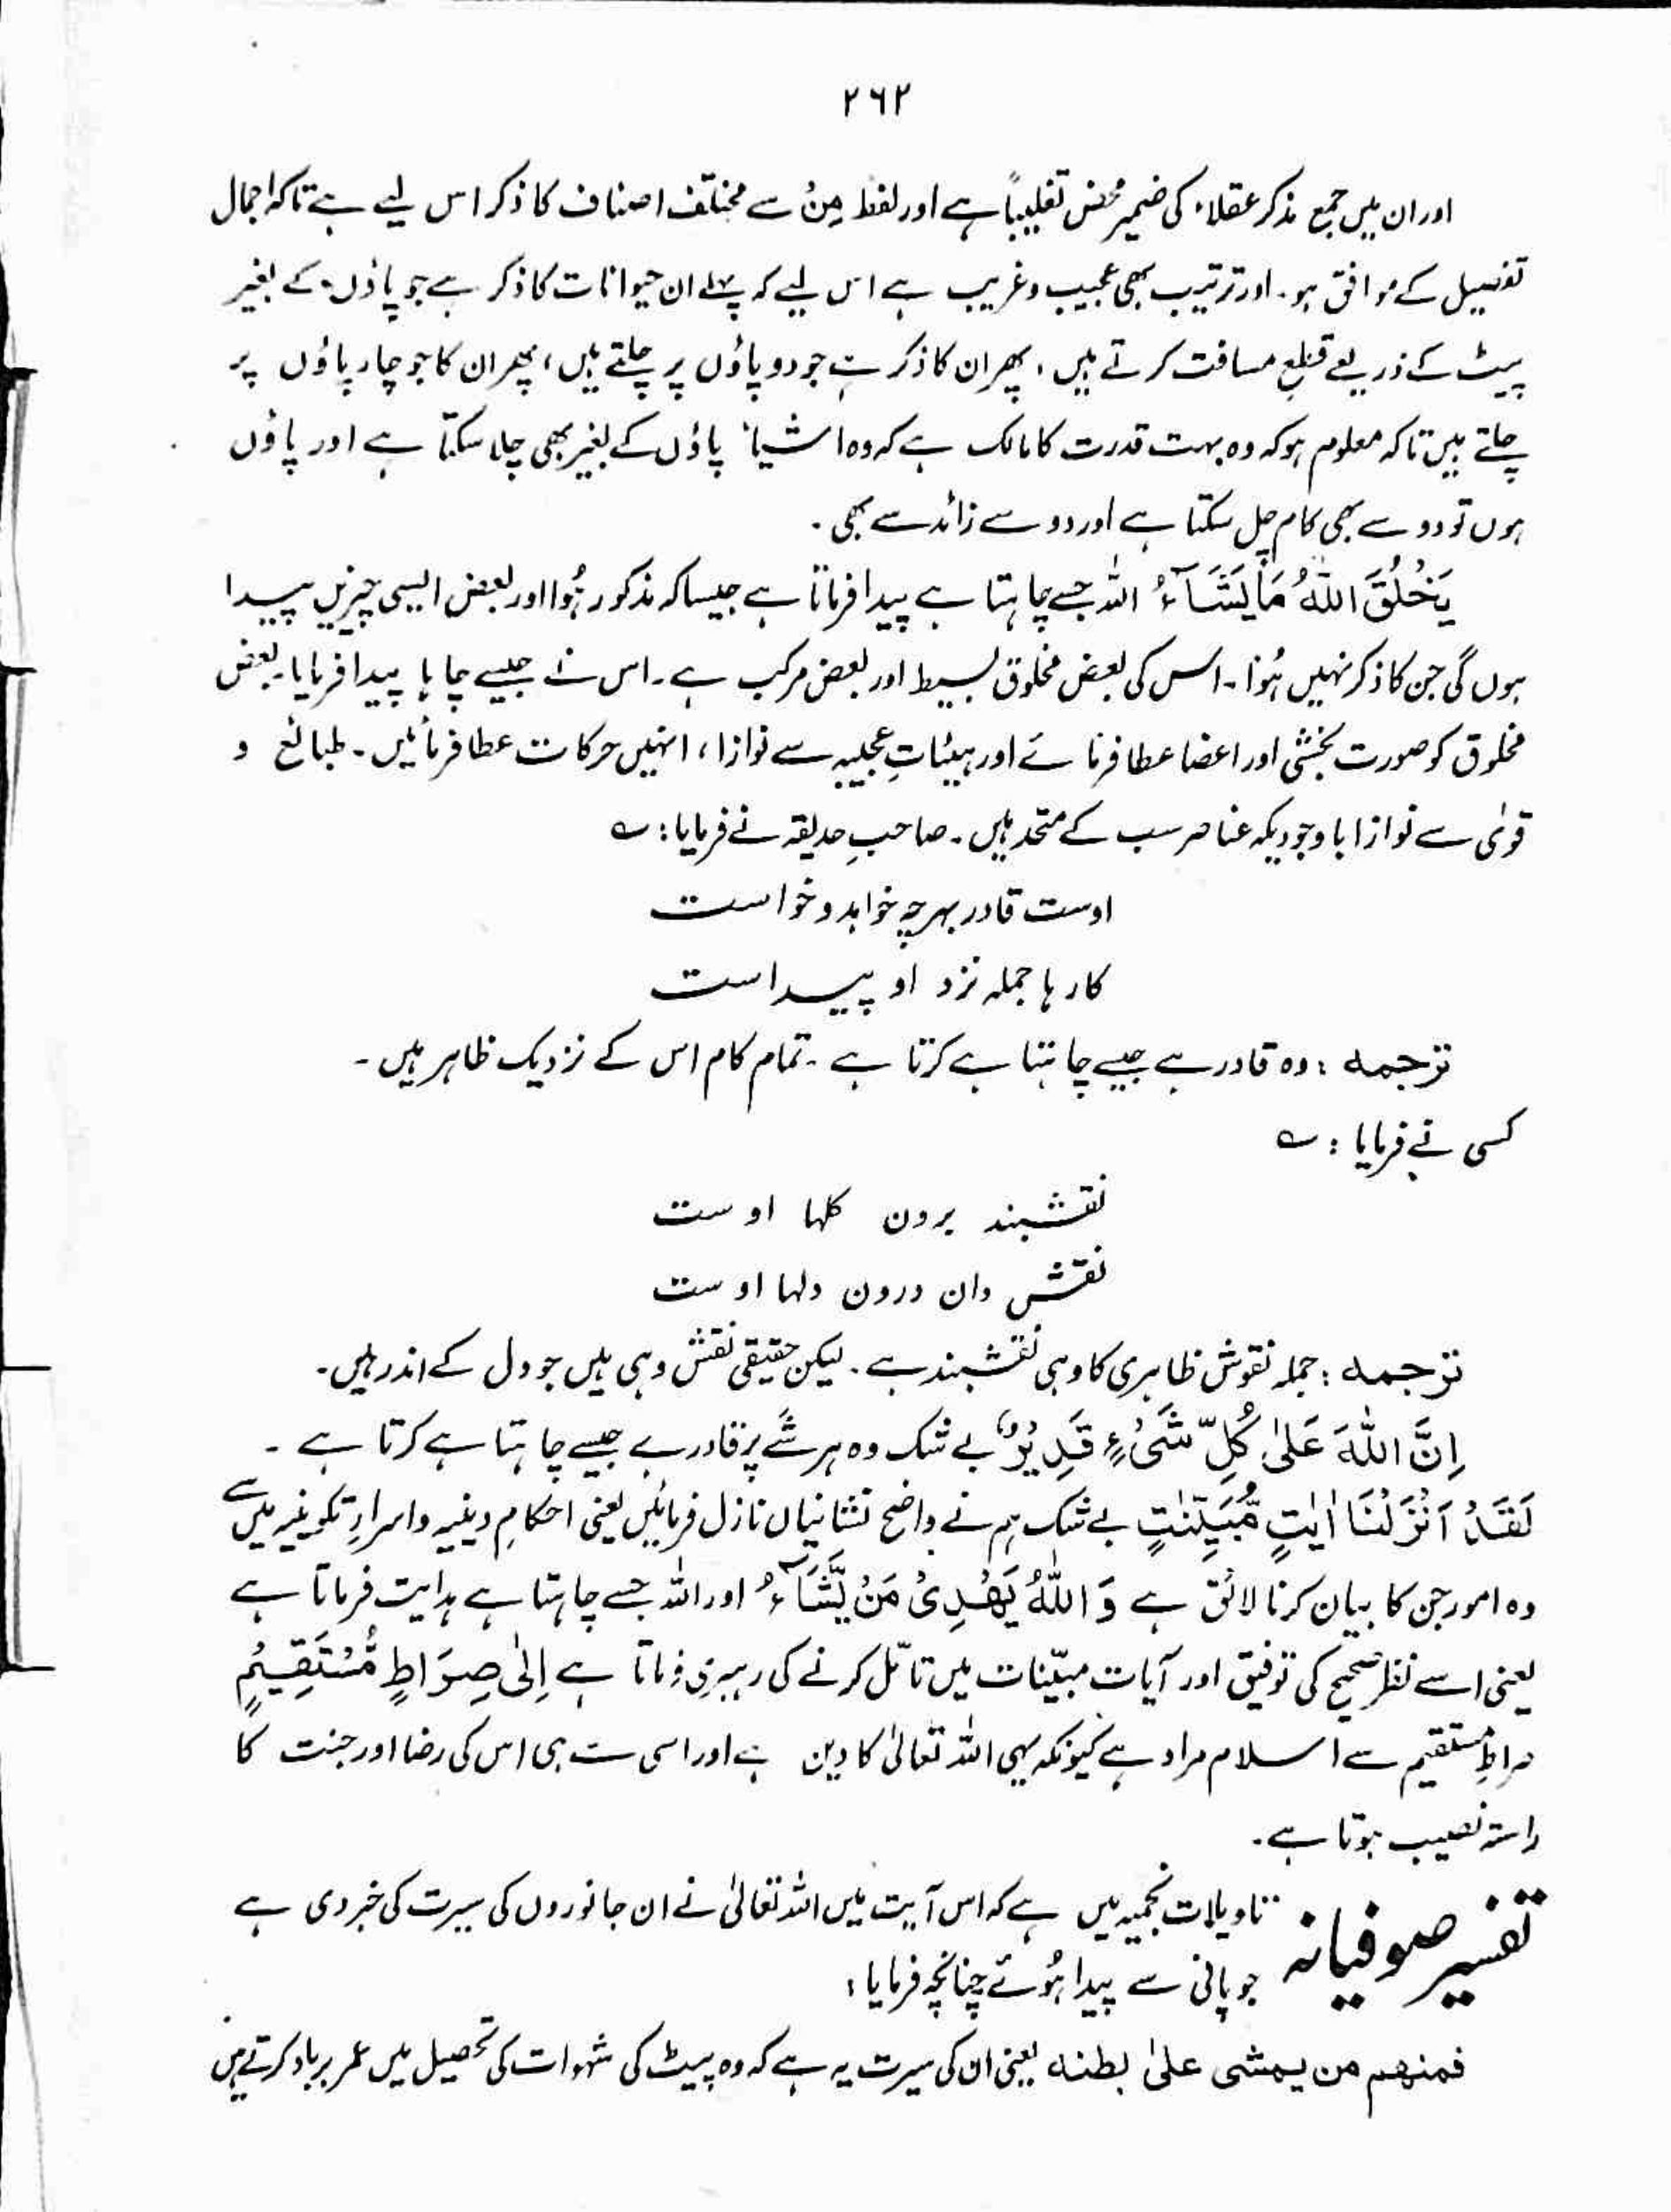 ۲۶۲
اور ان میں جمع مذکر عقلاء کی ضمیر محض تغلیباً ہے اور لفظ مِنْ سے مختلف اصناف کا ذکر اس لیے ہے تاکہ اجمال
تفصیل کے موافق ہو۔ اور ترتیب بھی عجیب و غریب ہے اس لیے کہ پہلے ان حیوانات کا ذکر ہے جو پاؤں کے بغیر
پیٹ کے ذریعے قطع مسافت کرتے ہیں، پھر ان کا ذکر ہے جو دو پاؤں پر چلتے ہیں، پھر ان کا جو چار پاؤں پر
چلتے ہیں تاکہ معلوم ہو کہ وہ بہت قدرت کا مالک ہے کہ وہ اشیاء پاؤں کے بغیر بھی چلا سکتا ہے اور پاؤں
ہوں تو دو سے بھی کام چل سکتا ہے اور دو سے زائد سے بھی۔
یَخْلُقُ اللّٰہُ مَا یَشَآءُ اللہ جسے چاہتا ہے پیدا فرماتا ہے جیسا کہ مذکور ہُوا اور بعض ایسی چیزیں پیدا
ہوں گی جن کا ذکر نہیں ہُوا۔ اس کی بعض مخلوق بسیط اور بعض مرکب ہے۔ اس نے جیسے چاہا پیدا فرمایا۔ بعض
مخلوق کو صورت بخشی اور اعضا عطا فرمائے اور ہیئاتِ عجیبہ سے نوازا، انہیں حرکات عطا فرمائیں۔ طبائع و
قوٰی سے نوازا باوجودیکہ عناصر سب کے متحد ہیں۔ صاحبِ حدیقہ نے فرمایا: ؎
اوست قادر بہرچہ خواہد و خواست
کارہا جملہ نزد او پیداست
ترجمہ: وہ قادر ہے جیسے چاہتا ہے کرتا ہے۔ تمام کام اس کے نزدیک ظاہر ہیں۔
کسی نے فرمایا: ؎
نقشبند برون گلہا اوست
نقش دان درون دلہا اوست
ترجمہ: جملہ نقوش ظاہری کا وہی نقشبند ہے۔ لیکن حقیقی نقش وہی ہیں جو دل کے اندر ہیں۔
اِنَّ اللّٰہَ عَلیٰ کُلِّ شَیْءٍ قَدِیْرٌ بے شک وہ ہر شے پر قادر ہے جیسے چاہتا ہے کرتا ہے۔
لَقَدْ اَنْزَلْنَا اٰیٰتٍ مُّبَیِّنٰتٍ بے شک ہم نے واضح نشانیاں نازل فرمائیں یعنی احکامِ دینیہ و اسرارِ تکوینیہ میں سے
وہ امور جن کا بیان کرنا لائق ہے وَ اللّٰہُ یَھْدِیْ مَنْ یَّشَآءُ اور اللہ جسے چاہتا ہے ہدایت فرماتا ہے
یعنی اسے نظر صحیح کی توفیق اور آیات مبیّنات میں تامّل کرنے کی رہبری فرماتا ہے اِلٰی صِرَاطٍ مُّسْتَقِیْمٍ
صراطِ مستقیم سے اسلام مراد ہے کیونکہ یہی اللہ تعالیٰ کا دین ہے اور اسی سے ہی اس کی رضا اور جنت کا
راستہ نصیب ہوتا ہے۔
تفسیر صوفیانہ تاویلات نجمیہ میں ہے کہ اس آیت میں اللہ تعالیٰ نے ان جانوروں کی سیرت کی خبر دی ہے
جو پانی سے پیدا ہُوئے چنانچہ فرمایا:
فمنھم من یمشی علیٰ بطنہ یعنی ان کی سیرت یہ ہے کہ وہ پیٹ کی شہوات کی تحصیل میں عمر برباد کرتے ہیں